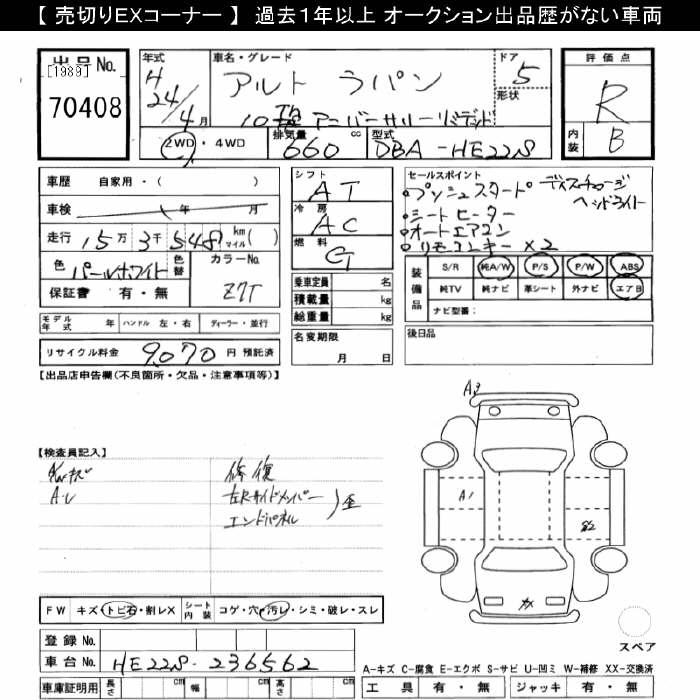 【 売切りEXコーナー 】 過去1年以上 オークション出品歴がない車両
出品 No.
[1989]
70408
年式
H
24/4月
車名・グレード
アルト ラパン
10 アニバーサリーリミテッド
ドア
5
形状
評価点
R
内装
B
2WD・4WD
排気量
660
cc
型式
DBA-HE22S
車歴 自家用・( )
車検 年 月
走行 15万3千548 km マイル ( )
色
パールホワイト
色替
カラーNo.
Z7T
保証書 有・無
シフト
AT
冷房
AC
燃料
G
乗車定員 名
積載量 kg
総重量 kg
セールスポイント
・プッシュスタート ディスチャージ
ヘッドライト
・シートヒーター
・オートエアコン
・リモコンキー×2
装備品
S/R 純A/W P/S P/W ABS
純TV 純ナビ 革シート 外ナビ エアB
ナビ型番：
モデル年式 年
ハンドル 左・右
ディーラー・並行
名変期限
月 日
後日品
リサイクル料金 9070 円 預託済
【出品店申告欄(不良箇所・欠品・注意事項等)】
A3
A1
S2
【検査員記入】
修復
左Rサイドメンバー
エンドパネル
歪
FW キズ・トビ石・割レX
シート内装 コゲ・穴・汚レ・シミ・破レ・スレ
登録 No.
車台 No. HE22S-236562
車庫証明用 長さ cm 幅 cm 高さ cm
スペア
A-キズ C-腐食 E-エクボ S-サビ U-凹ミ W-補修 XX-交換済
工具 有・無 ジャッキ 有・無